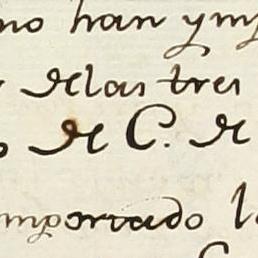 no han ymp
de las tres
de C. de
importado l